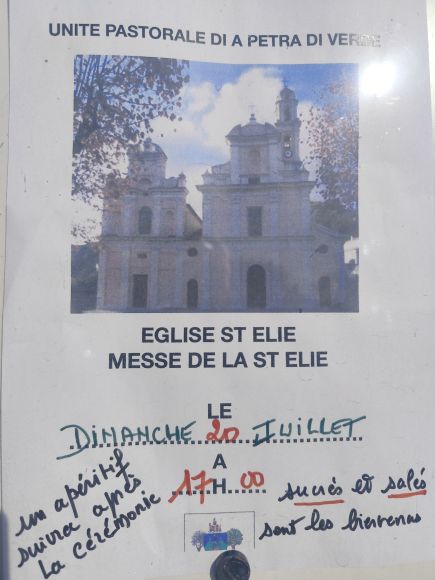 UNITE PASTORALE DI A PETRA DI VERDE
EGLISE ST ELIE
MESSE DE LA ST ELIE
LE
DIMANCHE 20 JUILLET
A
17 H 00
un apéritif
suivra après
la cérémonie
sucrés et salés
sont les bienvenus